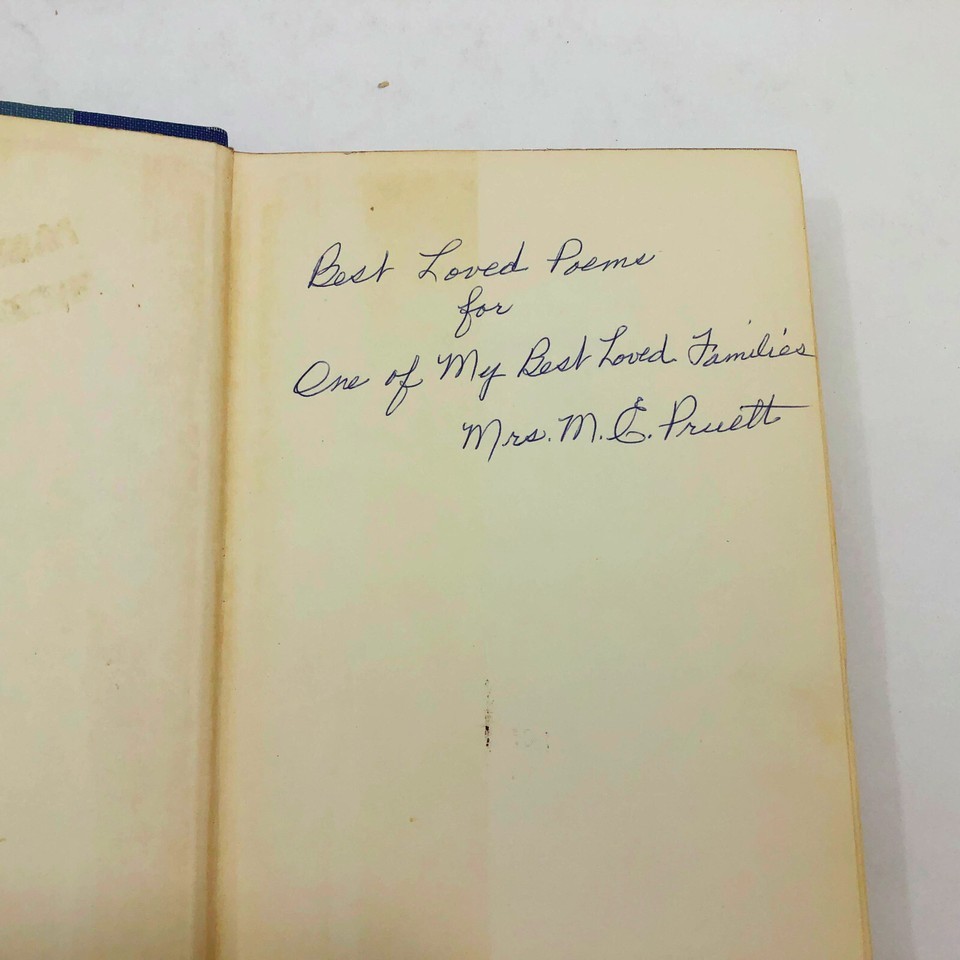 Best Loved Poems
for
One of My Best Loved Families
Mrs. M. E. Pruett